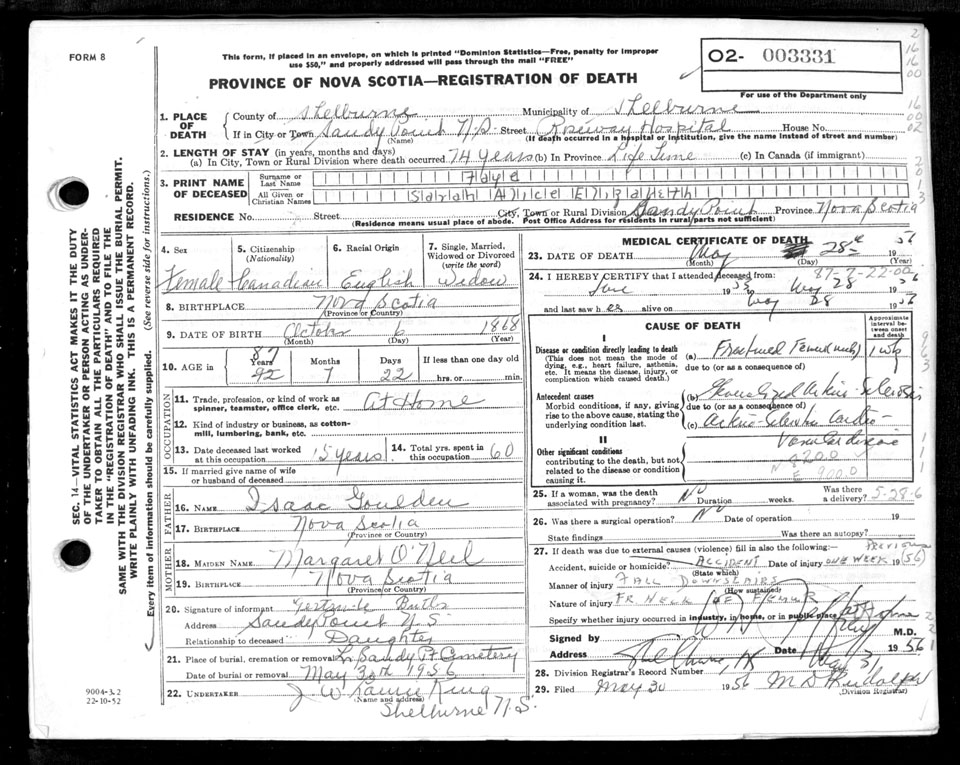 FORM 8
This form, if placed in an envelope, on which is printed "Dominion Statistics—Free, penalty for improper
use $50," and properly addressed will pass through the mail "FREE"
PROVINCE OF NOVA SCOTIA—REGISTRATION OF DEATH
02- 003331
For use of the Department only
1. PLACE OF DEATH
County of Shelburne Municipality of Shelburne
If in City or Town Sandy Point N.S. Street Roseway Hospital House No.
(Name) (If death occurred in a hospital or institution, give the name instead of street and number)
2. LENGTH OF STAY (in years, months and days)
(a) In City, Town or Rural Division where death occurred 74 years (b) In Province Life Time (c) In Canada (if immigrant)
3. PRINT NAME OF DECEASED
Surname or Last Name
All Given or Christian Names Sarah Alice Elizabeth
RESIDENCE No. Street City, Town or Rural Division Sandy Point Province Nova Scotia
(Residence means usual place of abode. Post Office Address for residents in rural parts not sufficient)
SEC. 14—VITAL STATISTICS ACT MAKES IT THE DUTY
OF THE UNDERTAKER OR PERSON ACTING AS UNDER-
TAKER TO OBTAIN ALL THE PARTICULARS REQUIRED
IN THE "REGISTRATION OF DEATH" AND TO FILE THE
SAME WITH THE DIVISION REGISTRAR WHO SHALL ISSUE THE BURIAL PERMIT.
WRITE PLAINLY WITH UNFADING INK. THIS IS A PERMANENT RECORD.
Every item of information should be carefully supplied. (See reverse side for instructions.)
4. Sex 5. Citizenship (Nationality) 6. Racial Origin 7. Single, Married, Widowed or Divorced (write the word)
Female Canadian English Widow
8. BIRTHPLACE Nova Scotia
(Province or Country)
9. DATE OF BIRTH October 6 1868
(Month) (Day) (Year)
10. AGE in Years Months Days If less than one day old
87
92 7 22 hrs. or min.
OCCUPATION
11. Trade, profession, or kind of work as spinner, teamster, office clerk, etc. At Home
12. Kind of industry or business, as cotton-mill, lumbering, bank, etc.
13. Date deceased last worked at this occupation 15 years 14. Total yrs. spent in this occupation 60
15. If married give name of wife or husband of deceased
FATHER
16. NAME Isaac Goulden
17. BIRTHPLACE Nova Scotia
(Province or Country)
MOTHER
18. MAIDEN NAME Margaret O'Neil
19. BIRTHPLACE Nova Scotia
(Province or Country)
20. Signature of informant Gertrude
Address Sandy Point N S
Relationship to deceased Daughter
21. Place of burial, cremation or removal Sandy Pt Cemetery
Date of burial or removal May 30th 1956
22. UNDERTAKER J W
(Name and address)
Shelburne N.S.
9004-3.2
22-10-52
MEDICAL CERTIFICATE OF DEATH
23. DATE OF DEATH May 28 19
(Month) (Day) (Year)
24. I HEREBY CERTIFY that I attended deceased from:
87-7-22-00
19 May 28
and last saw her alive on May 28 19
CAUSE OF DEATH
Approximate interval between onset and death
I
Disease or condition directly leading to death
(This does not mean the mode of dying, e.g., heart failure, asthenia, etc. It means the disease, injury, or complication which caused death.)
(a) Fractured Femur (neck) 1 wk
due to (or as a consequence of)
Antecedent causes
Morbid conditions, if any, giving rise to the above cause, stating the underlying condition last.
(b) Generalized Arterio Sclerosis
due to (or as a consequence of)
(c) Arterio-Sclerotic Cardio
Vascular disease
II
Other significant conditions
contributing to the death, but not related to the disease or condition causing it.
N 820.0
E 900.0
25. If a woman, was the death associated with pregnancy? No Duration weeks. Was there a delivery?
5-28-6
26. Was there a surgical operation? No Date of operation 19
State findings Was there an autopsy?
27. If death was due to external causes (violence) fill in also the following:— PREVIOUS
Accident, suicide or homicide? ACCIDENT Date of injury ONE WEEK 19 (56)
(State which)
Manner of injury FALL DOWNSTAIRS
(How sustained)
Nature of injury FR NECK OF FEMUR
Specify whether injury occurred in industry, in home, or in public place
Signed by M.D.
Address Shelburne, NS Date May 31 1956
28. Division Registrar's Record Number
29. Filed May 30 1956 M D Rudolph
(Division Registrar)